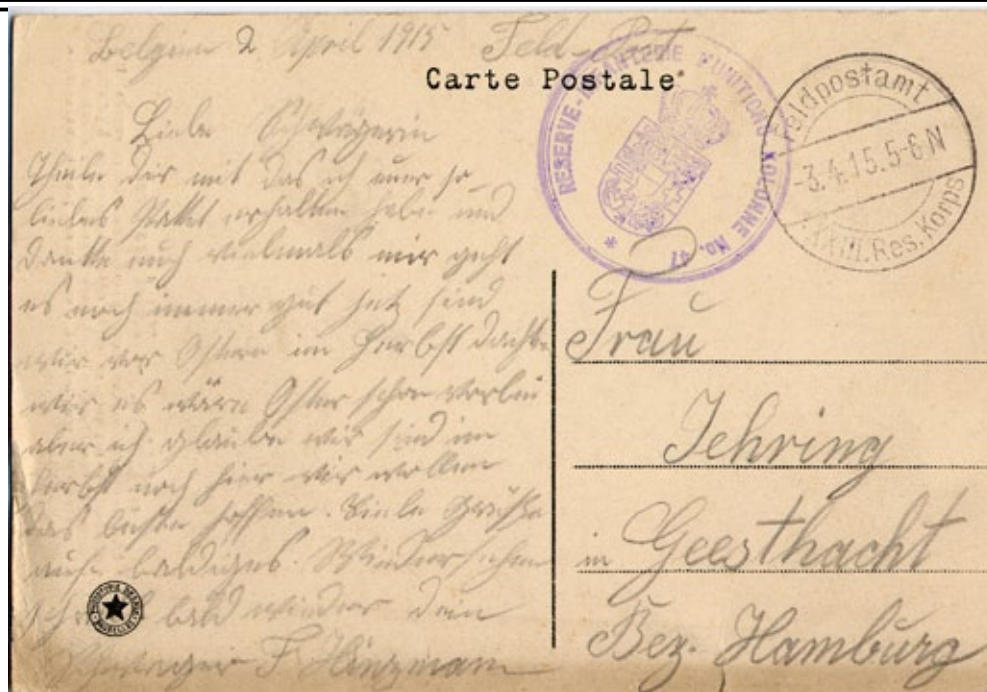 Belgien 2 April 1915 Feld-Post
Carte Postale
RESERVE-INFANTERIE MUNITIONS KOLONNE No. 47
Feldpostamt
-3.4.15.5-6N
XXIII.Res.Korps
Liebe Schwägerin
Theile dir mit das ich euer so
liebes Paket erhalten habe und
Danke euch vielmals mir geht
es noch immer gut jetz sind
wir vor Ostern im Herbst dachte
wir es wären Oster schon vorbei
aber ich glaube wir sind im
Herbst noch hier wir wollen
das beste hoffen. Viele Grüße
auf baldiges Wiedersehen
bald wieder dein
Schwager F
Frau
Jehring
in Geesthacht
Bez. Hamburg